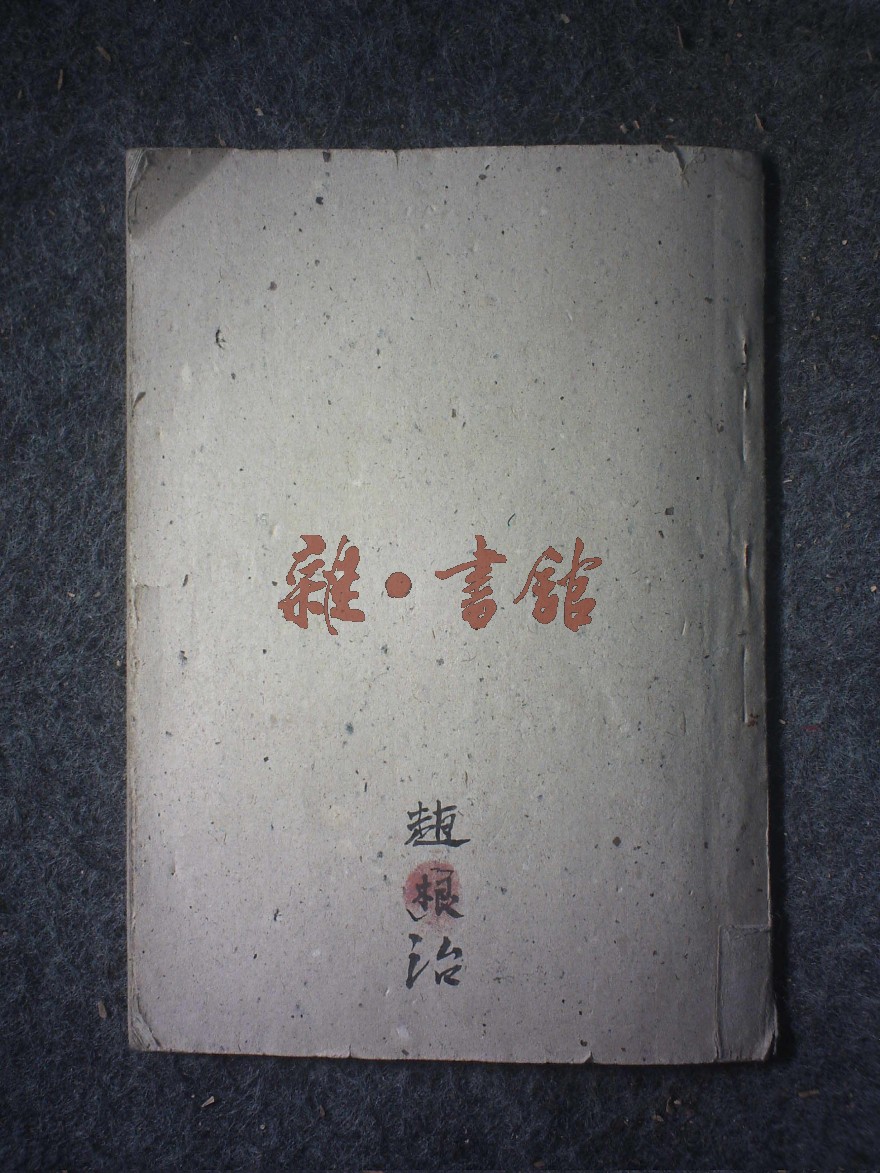 雜·書館
趙根治